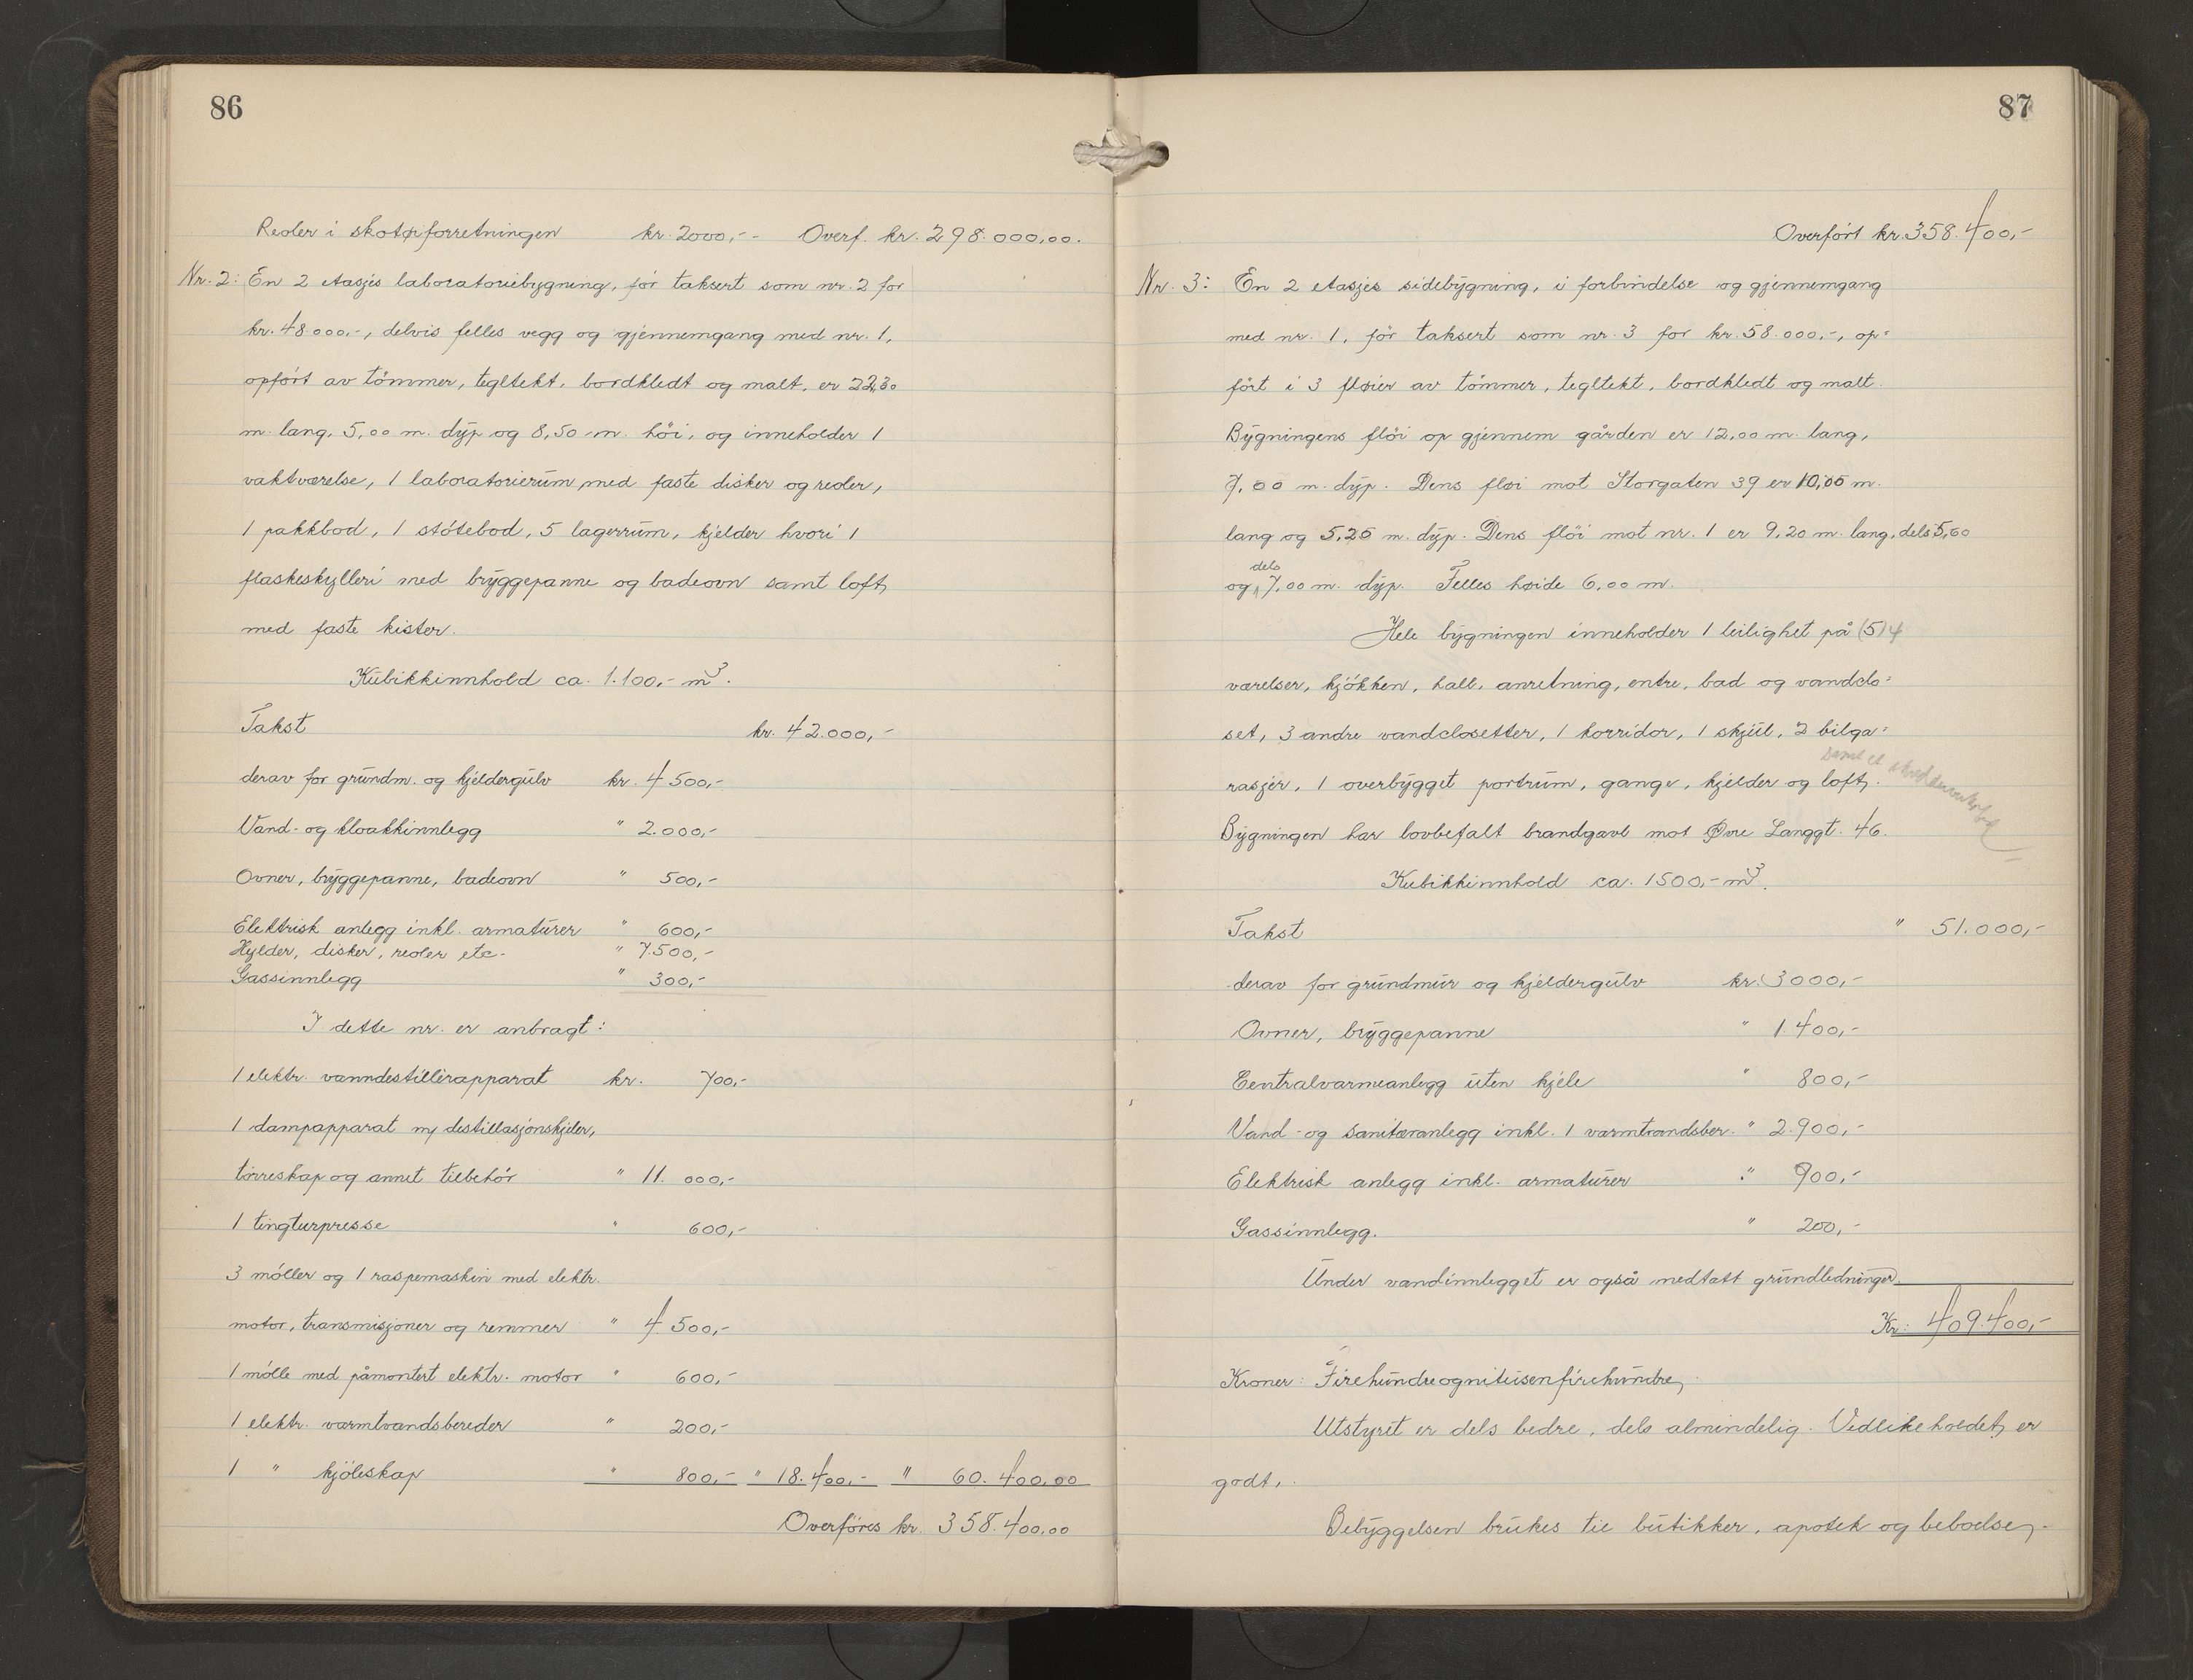 86
Reoler i skotøiforretningen kr. 2000,-- Overf. kr. 298.000,00.
Nr. 2: En 2 etasjes laboratoriebygning, før taksert som nr. 2 for
kr. 48.000.-, delvis felles vegg og gjennemgang med nr. 1,
opført av tømmer, tegltekt, bordkledt og malt, er 22,30
m. lang, 5,00 m. dyp og 8,50 m. høi, og inneholder 1
vaktværelse, 1 laboratorierum med faste disker og reoler,
1 pakkbod, 1 støtebod, 5 lagerrum, kjelder hvori 1
flaskeskylleri med bryggepanne og badeovn samt loft
med faste kister.
Kubikkinnhold ca. 1.100,- m³.
Takst kr. 42.000,-
derav for grundm. og kjeldergulv kr. 4.500,-
Vand- og kloakkinnlegg " 2.000,-
Ovner, bryggepanne, badeovn " 500,-
Elektrisk anlegg inkl. armaturer " 600,-
Hylder, disker, reoler etc. " 7.500,-
Gassinnlegg " 300,-
I dette nr. er anbragt:
1 elektr. vanndestillerapparat kr. 700,-
1 dampapparat m/ destillasjonskjeler,
tørreskap og annet tilbehør " 11.000,-
1 tingturpresse " 600,-
3 møller og 1 raspemaskin med elektr.
motor, transmisjoner og remmer " 4.500,-
1 mølle med påmontert elektr. motor " 600,-
1 elektr. varmtvandsbereder " 200,-
1 " kjøleskap " 800,- " 18.400,- " 60.400,00
Overføres kr. 358.400,00
87
Overført kr. 358.400,-
Nr. 3: En 2 etasjes sidebygning, i forbindelse og gjennemgang
med nr. 1, før taksert som nr. 3 for kr. 58.000,-, op=
ført i 3 fløier av tømmer, tegltekt, bordkledt og malt.
Bygningens fløi op gjennem gården er 12,00 m. lang,
7,00 m. dyp. Dens fløi mot Storgaten 39 er 10,00 m.
lang og 5,25 m. dyp. Dens fløi mot nr. 1 er 9,20 m. lang, dels 5,60
og dels 7,00 m. dyp. Felles høide 6,00 m.
Hele bygningen inneholder 1 leilighet på (5) 4
værelser, kjøkken, hall, anretning, entre, bad og vandclo=
set, 3 andre vandclosetter, 1 korridor, 1 skjul, 2 bilga=
rasjer, 1 overbygget portrum, gange, kjelder og loft.
samt et
Bygningen har lovbefalt brandgavl mot Øvre Langgt. 46.
Kubikkinnhold ca. 1500,- m³.
Takst " 51.000,-
derav for grundmur og kjeldergulv kr. 3000,-
Ovner, bryggepanne " 1.400,-
Centralvarmeanlegg uten kjele " 800,-
Vand- og sanitæranlegg inkl. 1 varmtvandsber. " 2.900,-
Elektrisk anlegg inkl. armaturer " 900,-
Gassinnlegg. " 200,-
Under vandinnlegget er også medtatt grundledninger
Kr: 409.400,-
Kroner: Firehundreognitusenfirehundre,
Utstyret er dels bedre, dels almindelig. Vedlikeholdet er
godt.
Bebyggelsen brukes til butikker, apotek og beboelse.